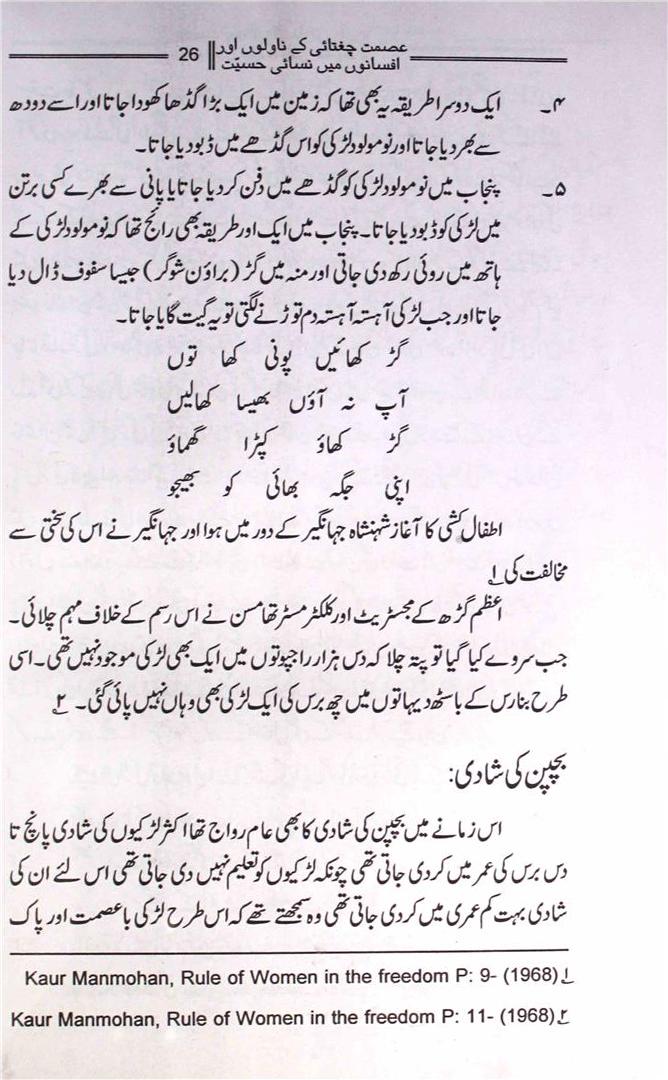 عصمت چغتائی کے ناولوں اور
افسانوں میں نسائی حسیّت
26
۴۔ ایک دوسرا طریقہ یہ بھی تھا کہ زمین میں ایک بڑا گڈھا کھودا جاتا اور اسے دودھ
سے بھر دیا جاتا اور نومولود لڑکی کو اس گڈھے میں ڈبو دیا جاتا۔
۵۔ پنجاب میں نومولود لڑکی کو گڈھے میں دفن کر دیا جاتا یا پانی سے بھرے کسی برتن
میں لڑکی کو ڈبو دیا جاتا۔ پنجاب میں ایک اور طریقہ بھی رائج تھا کہ نومولود لڑکی کے
ہاتھ میں روئی رکھ دی جاتی اور منہ میں گڑ (براؤن شوگر) جیسا سفوف ڈال دیا
جاتا اور جب لڑکی آہستہ آہستہ دم توڑنے لگتی تو یہ گیت گایا جاتا۔
گڑ کھائیں پونی کھا توں
آپ نہ آؤں بھیسا کھالیں
گڑ کھاؤ کپڑا گھماؤ
اپنی جگہ بھائی کو بھیجو
اطفال کشی کا آغاز شہنشاہ جہانگیر کے دور میں ہوا اور جہانگیر نے اس کی سختی سے
مخالفت کی ۱؎
اعظم گڑھ کے مجسٹریٹ اور کلکٹر مسٹر تھامسن نے اس رسم کے خلاف مہم چلائی۔
جب سروے کیا گیا تو پتہ چلا کہ دس ہزار راجپوتوں میں ایک بھی لڑکی موجود نہیں تھی۔ اسی
طرح بنارس کے باسٹھ دیہاتوں میں چھ برس کی ایک لڑکی بھی وہاں نہیں پائی گئی۔ ۲؎
بچپن کی شادی:
اس زمانے میں بچپن کی شادی کا بھی عام رواج تھا اکثر لڑکیوں کی شادی پانچ تا
دس برس کی عمر میں کر دی جاتی تھی چونکہ لڑکیوں کو تعلیم نہیں دی جاتی تھی اس لئے ان کی
شادی بہت کم عمری میں کر دی جاتی تھی وہ سمجھتے تھے کہ اس طرح لڑکی با عصمت اور پاک
۱؎ Kaur Manmohan, Rule of Women in the freedom P: 9- (1968)
۲؎ Kaur Manmohan, Rule of Women in the freedom P: 11- (1968)